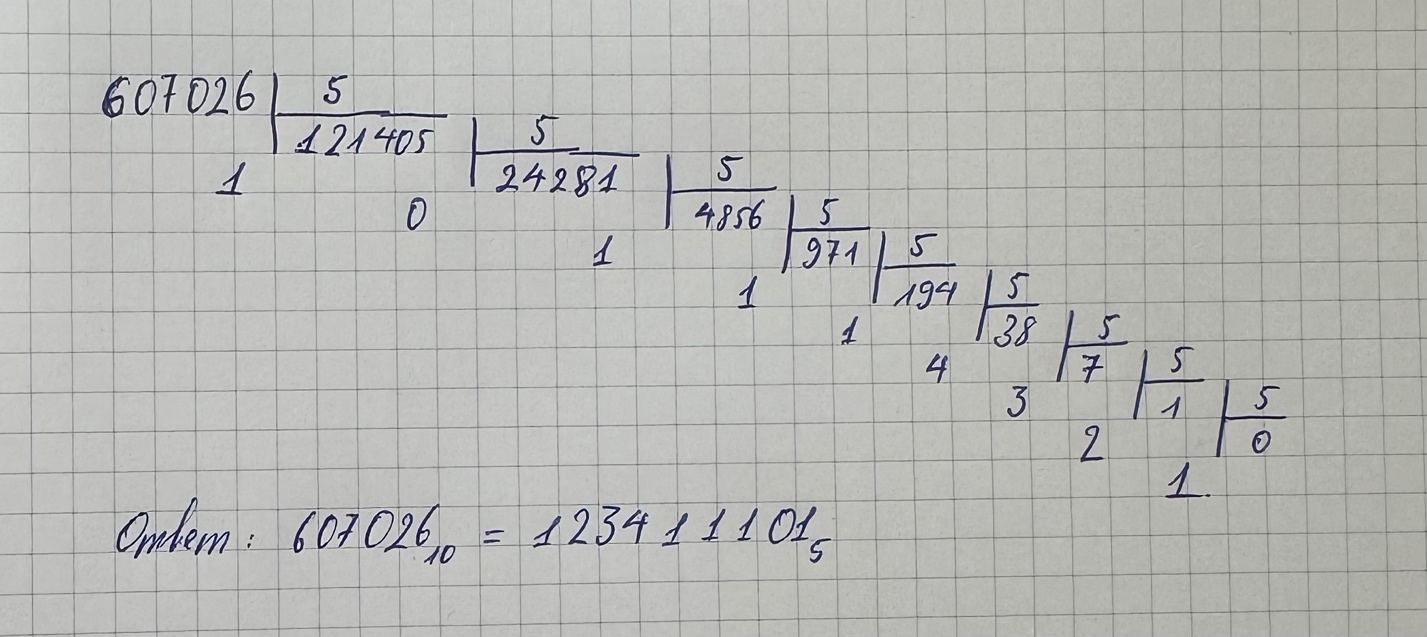 607026 5
121405 5
1 24281 5
0 4856 5
1 971 5
1 194 5
1 38 5
4 7 5
3 1 5
2 0
1
Ответ: 607026₁₀ = 1234111101₅